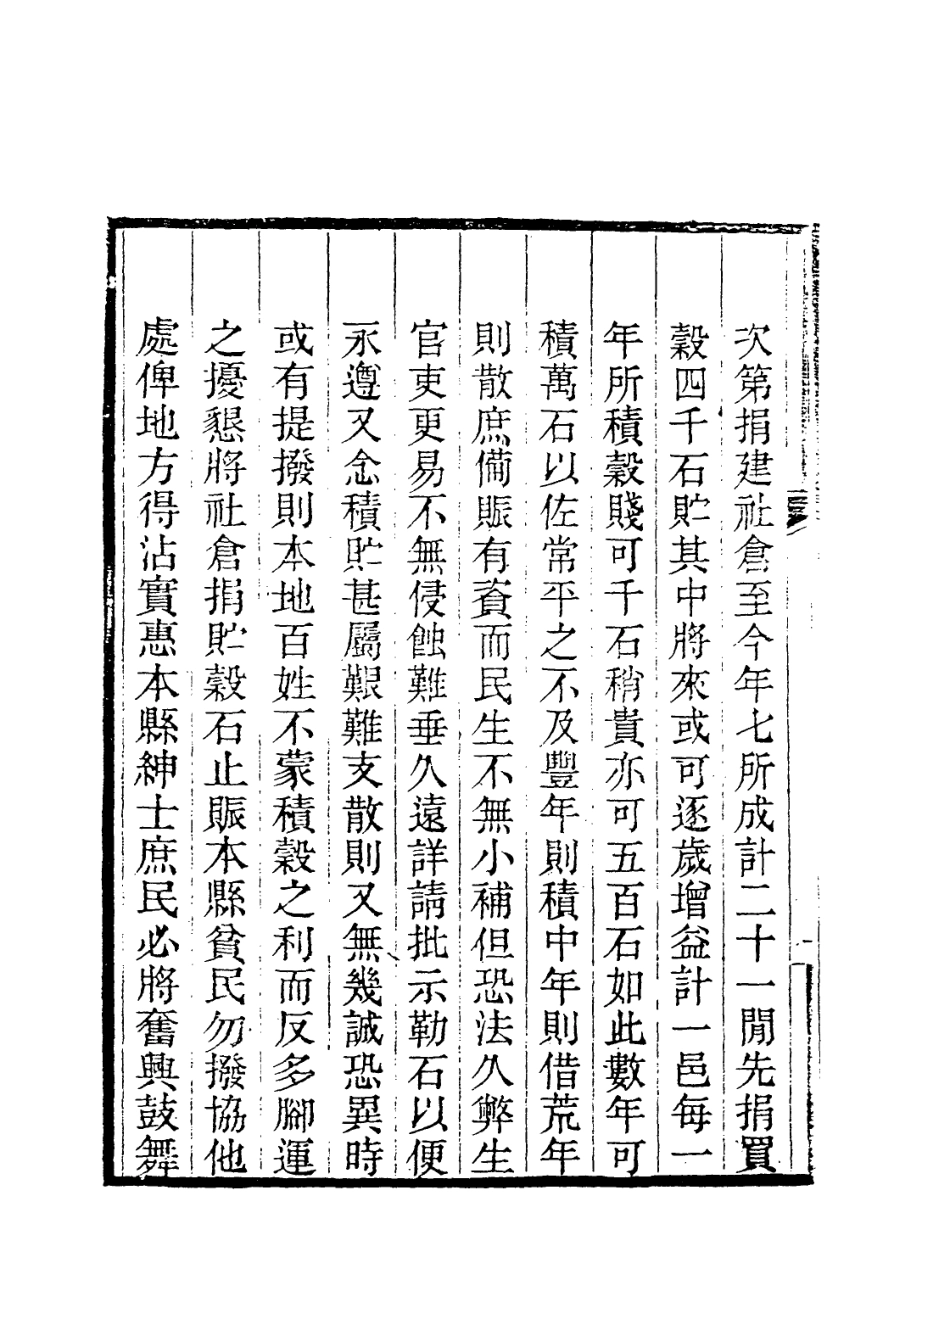 次第捐建社倉至今年七所成計二十一閒先捐買
穀四千石貯其中將來或可逐歲增益計一邑每一
年所積穀賤可千石稍貴亦可五百石如此數年可
積萬石以佐常平之不及豐年則積中年則借荒年
則散庶備賑有資而民生不無小補但恐法久弊生
官吏更易不無侵蝕難垂久遠詳請批示勒石以便
永遵又念積貯甚屬艱難支散則又無幾誠恐異時
或有提撥則本地百姓不蒙積穀之利而反多腳運
之擾懇將社倉捐貯穀石止賑本縣貧民勿撥協他
處俾地方得沾實惠本縣紳士庶民必將奮興鼓舞